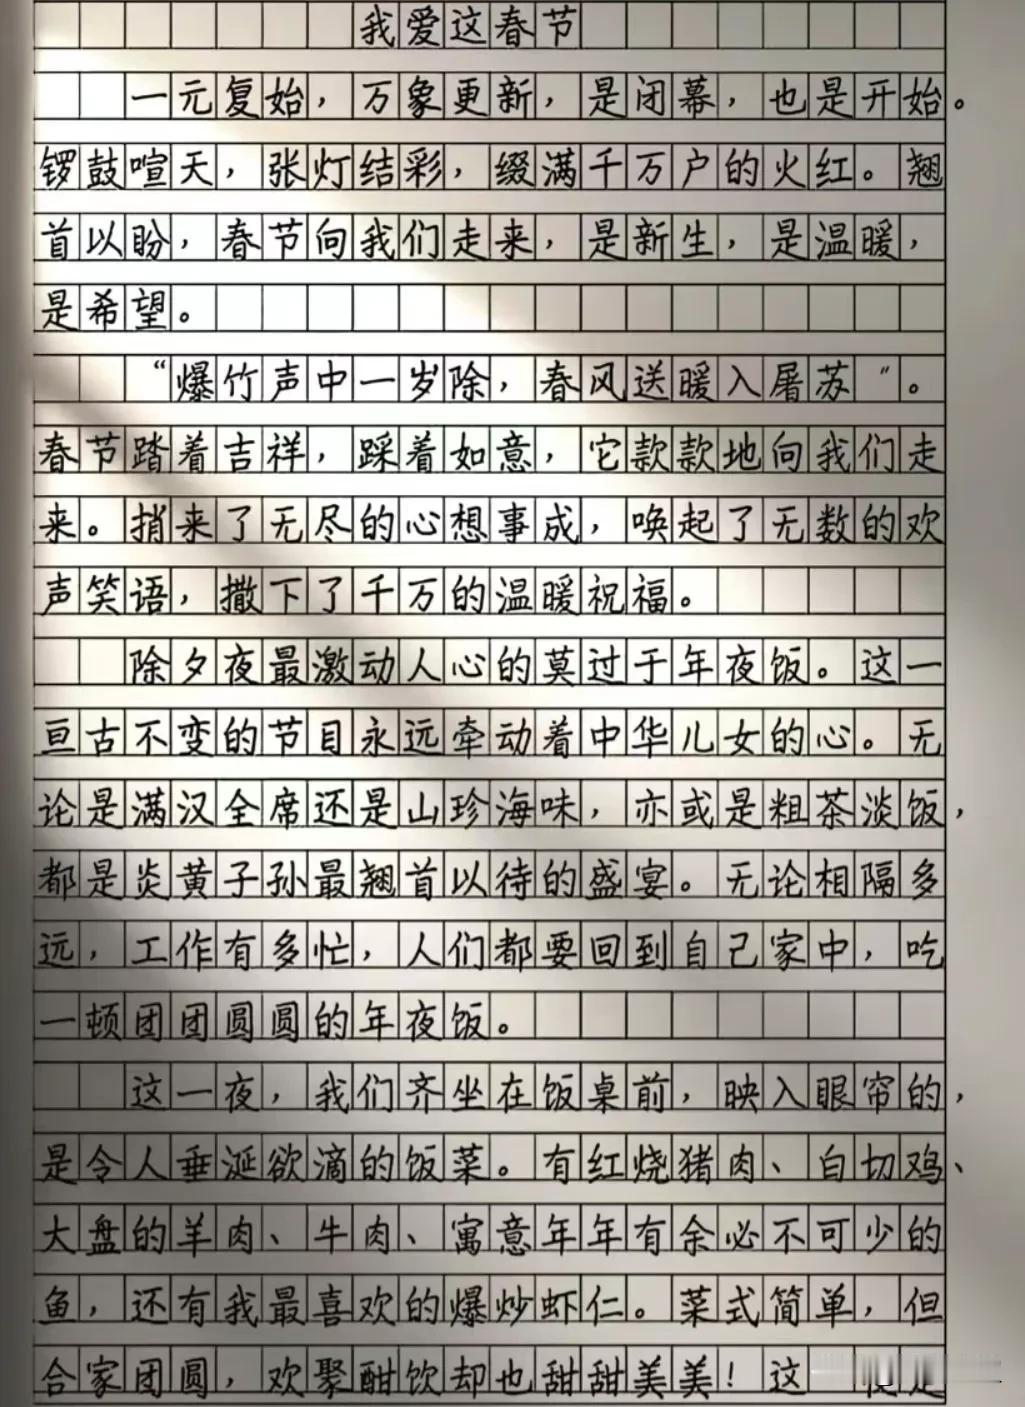 我爱这春节
一元复始，万象更新，是闭幕，也是开始。
锣鼓喧天，张灯结彩，缀满千万户的火红。翘
首以盼，春节向我们走来，是新生，是温暖，
是希望。
“爆竹声中一岁除，春风送暖入屠苏”。
春节踏着吉祥，踩着如意，它款款地向我们走
来。捎来了无尽的心想事成，唤起了无数的欢
声笑语，撒下了千万的温暖祝福。
除夕夜最激动人心的莫过于年夜饭。这一
亘古不变的节目永远牵动着中华儿女的心。无
论是满汉全席还是山珍海味，亦或是粗茶淡饭，
都是炎黄子孙最翘首以待的盛宴。无论相隔多
远，工作有多忙，人们都要回到自己家中，吃
一顿团团圆圆的年夜饭。
这一夜，我们齐坐在饭桌前，映入眼帘的，
是令人垂涎欲滴的饭菜。有红烧猪肉、白切鸡、
大盘的羊肉、牛肉、寓意年年有余必不可少的
鱼，还有我最喜欢的爆炒虾仁。菜式简单，但
合家团圆，欢聚酣饮却也甜甜美美！这